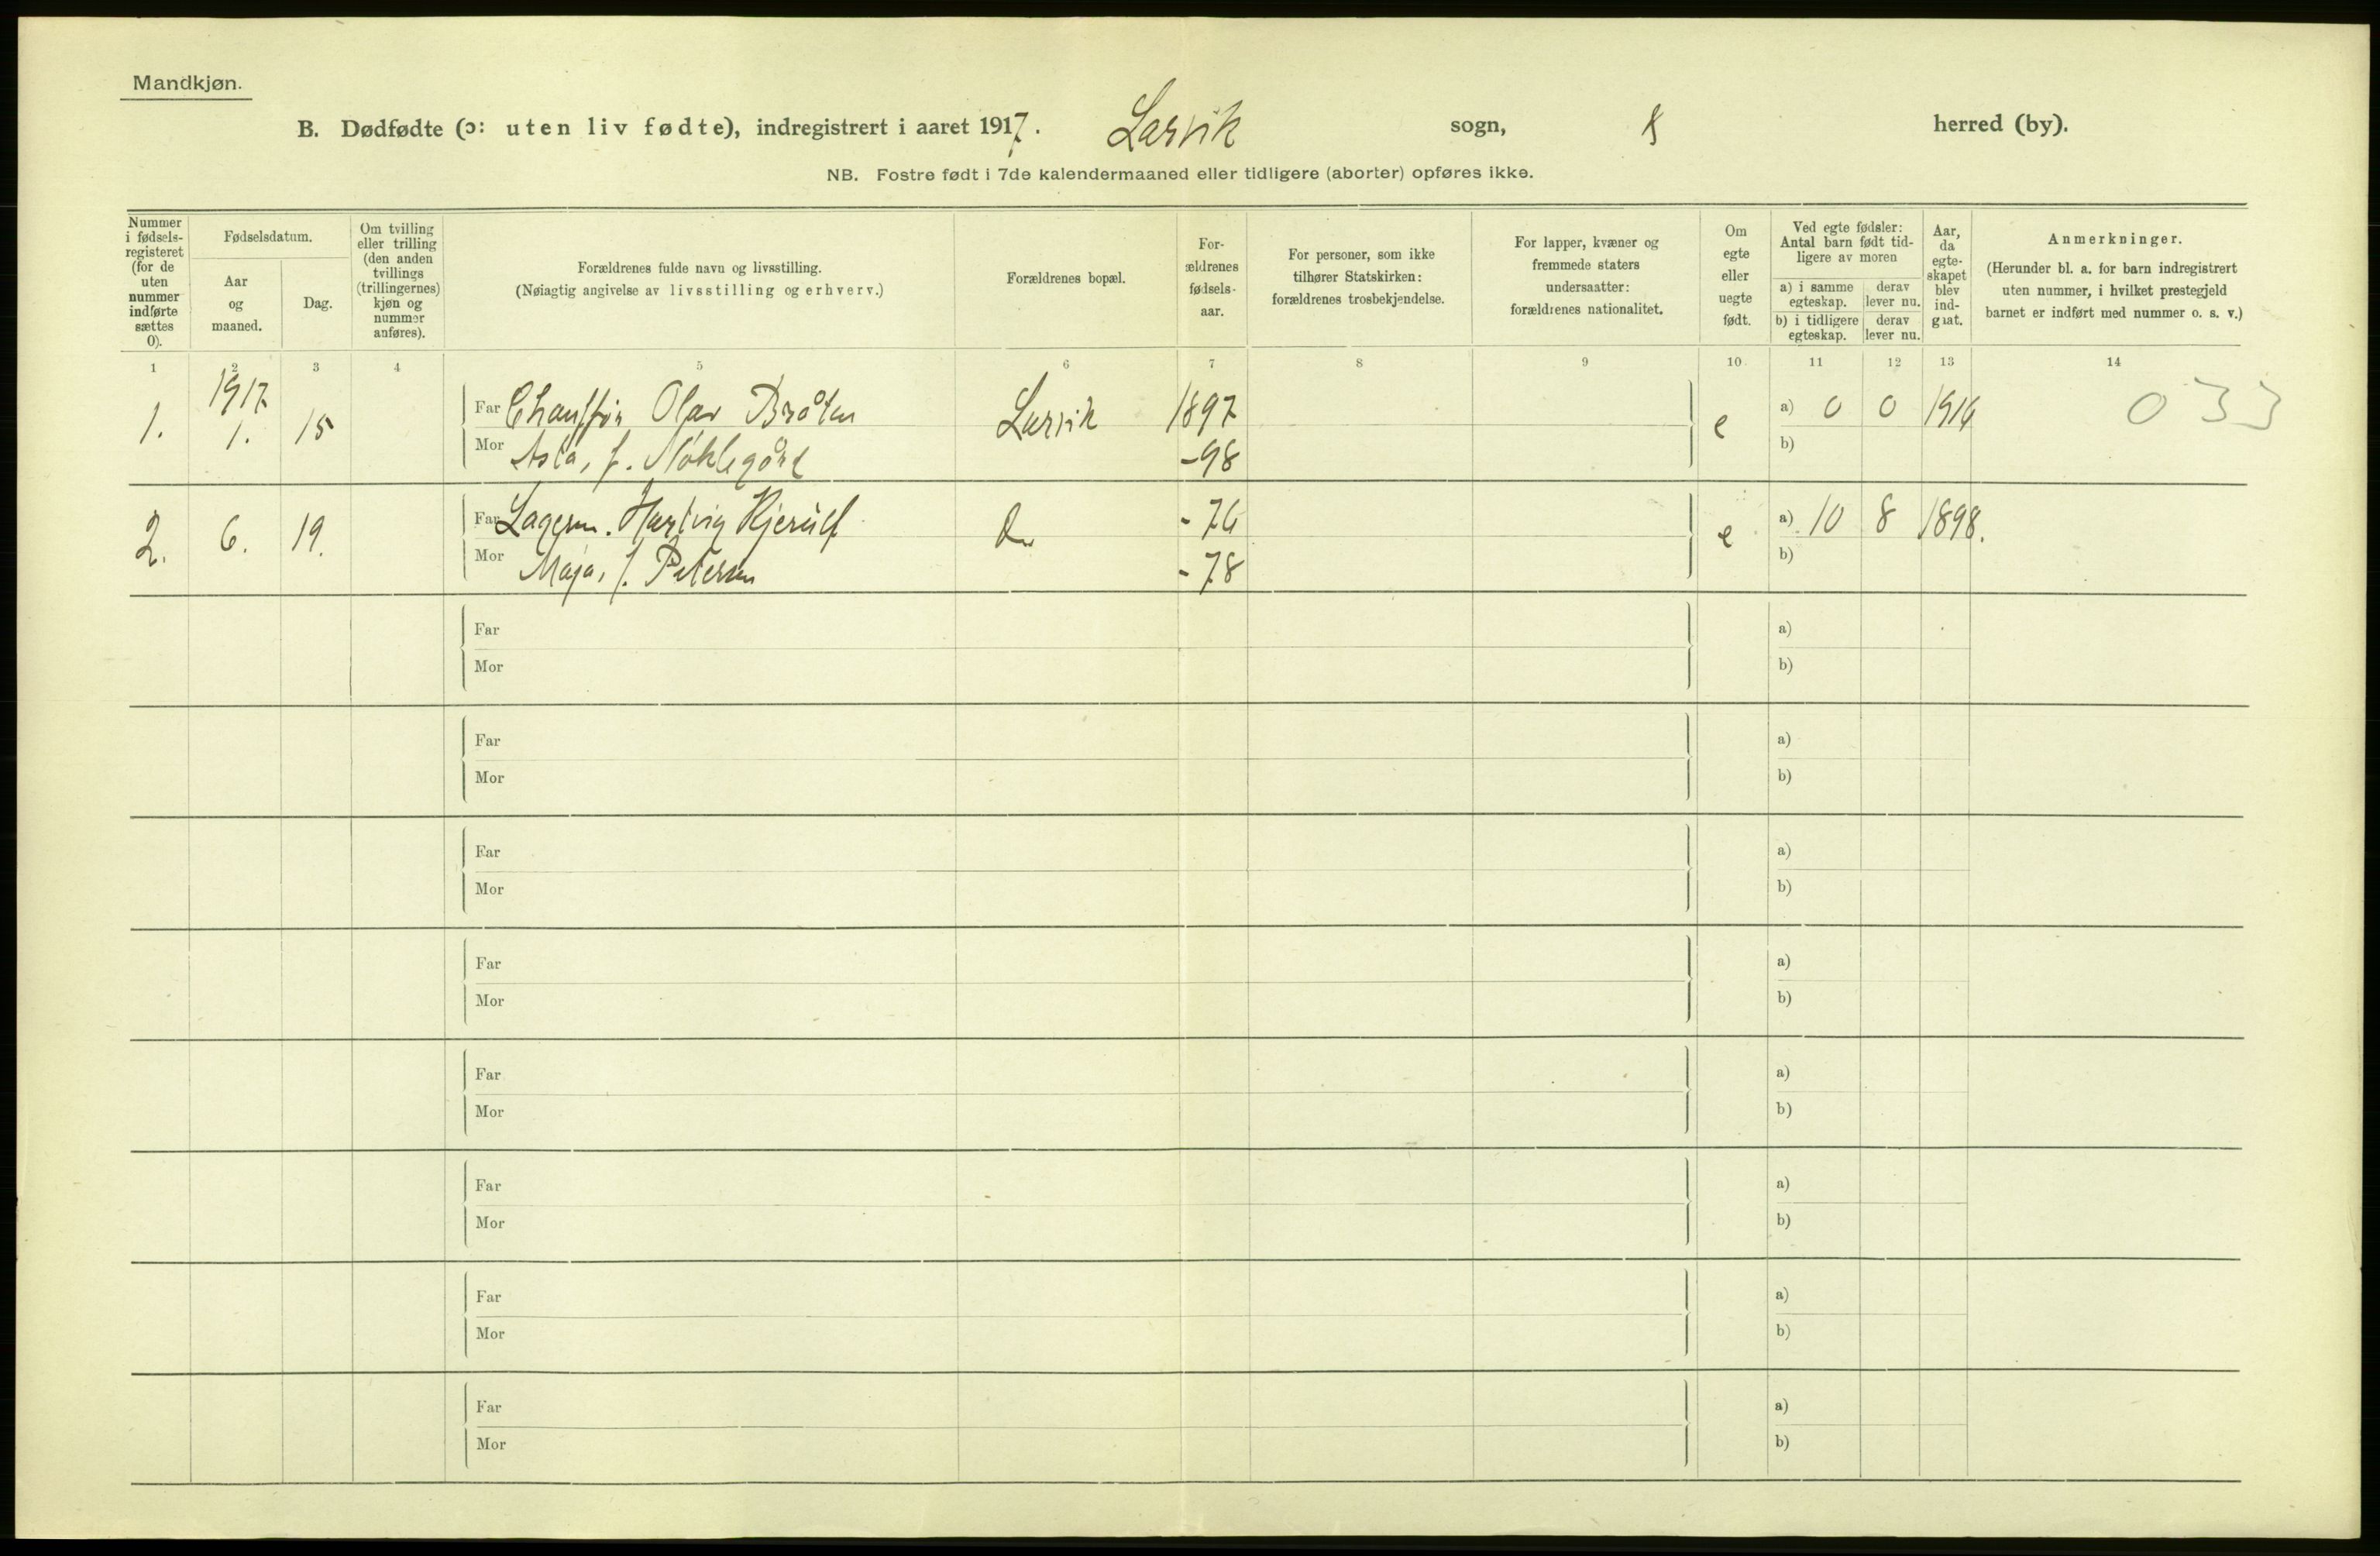 Mandkjøn.
B. Dødfødte (ɔ: uten liv fødte), indregistrert i aaret 1917. Larvik sogn, herred (by).
NB. Fostre født i 7de kalendermaaned eller tidligere (aborter) opføres ikke.
Nummer
i fødsels-
registeret
(for de
uten
nummer
indførte
sættes
0).
Fødselsdatum.
Aar
og
maaned.
Dag.
Om tvilling
eller trilling
(den anden
tvillings
(trillingernes)
kjøn og
nummer
anføres).
Forældrenes fulde navn og livsstilling.
(Nøiagtig angivelse av livsstilling og erhverv.)
Forældrenes bopæl.
For-
ældrenes
fødsels-
aar.
For personer, som ikke
tilhører Statskirken:
forældrenes trosbekjendelse.
For lapper, kvæner og
fremmede staters
undersaatter:
forældrenes nationalitet.
Om
egte
eller
uegte
født.
Ved egte fødsler:
Antal barn født tid-
ligere av moren
a) i samme
egteskap.
derav
lever nu.
b) i tidligere
egteskap.
derav
lever nu.
Aar,
da
egte-
skapet
blev
ind-
gaat.
Anmerkninger.
(Herunder bl. a. for barn indregistrert
uten nummer, i hvilket prestegjeld
barnet er indført med nummer o. s. v.)
1 2 3 4 5 6 7 8 9 10 11 12 13 14
1917
1. 1. 15 Far Chauffør Olav Bråten Larvik 1897 e a) 0 0 1916 033
Mor Asta, f. -98 b)
2. 6. 19. Far Lagerm. Hartvig Kjerulf Do - 76 e a) 10 8 1898.
Mor Maja, f. Petersen - 78 b)
Far a)
Mor b)
Far a)
Mor b)
Far a)
Mor b)
Far a)
Mor b)
Far a)
Mor b)
Far a)
Mor b)
Far a)
Mor b)
Far a)
Mor b)